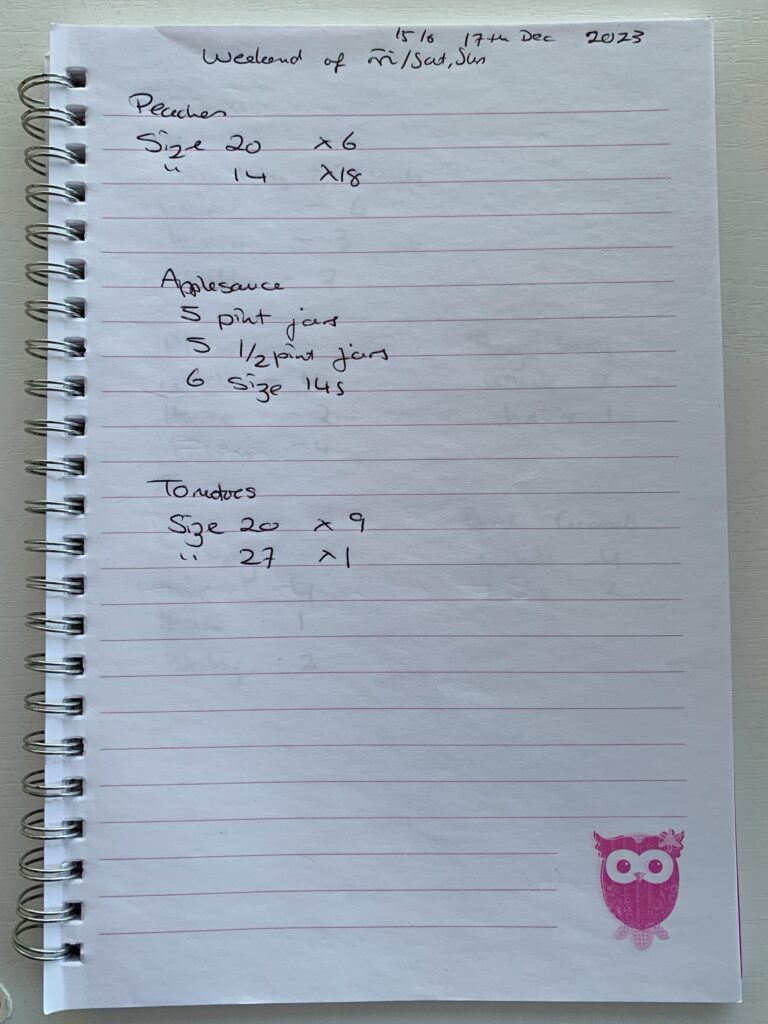 15/6 17th Dec 2023
Weekend of Fri/Sat, Sun
Peaches
Size 20 x 6
" 14 x 18
Applesauce
5 pint jars
5 1/2 pint jars
6 Size 14s
Tomatoes
Size 20 x 9
" 27 x 1